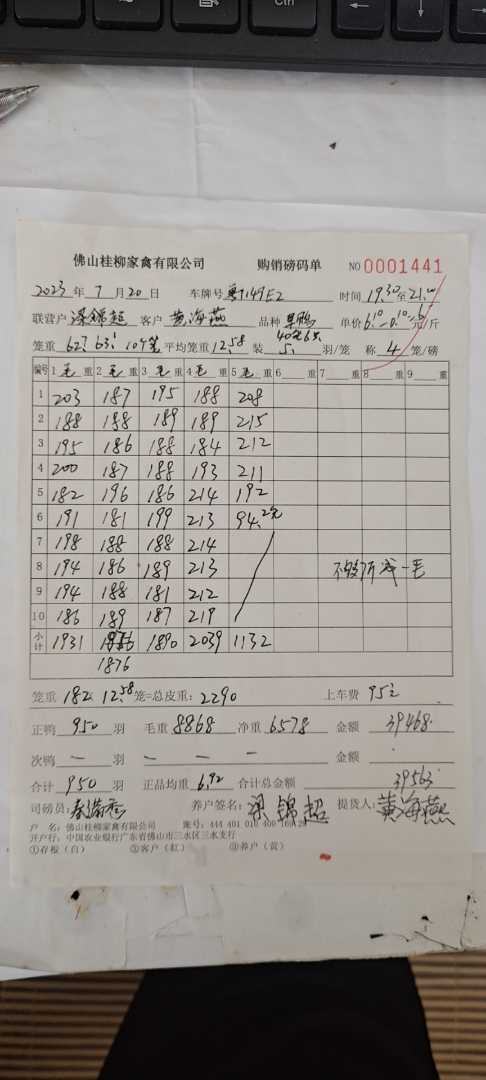 Ctrl
佛山桂柳家禽有限公司 购销磅码单 NO 0001441
2023年 7月20日 车牌号 粤J149E2 时间 19.30至21.00
联营户 梁锦超 客户 黄海燕 品种 单价 6.10-0.10=6元/斤
笼重 62. 63. 10个笼 平均笼重 12.58 装 5. 羽/笼 称 4 笼/磅
编号 1 毛 重 2 毛 重 3 毛 重 4 毛 重 5 毛 重 6 重 7 重 8 重 9 重
1 203 187 195 188 208
2 188 188 189 189 215
3 195 186 188 184 212
4 200 187 188 193 211
5 182 196 186 214 192
6 191 181 199 213 94.2
7 198 188 188 214
8 194 186 189 213 不够斤 一毛
9 194 188 181 212
10 186 189 187 219
小计 1931 1890 2039 1132
1876
笼重 182. 12.58 笼=总皮重: 2290 上车费 95元
正鸭 950 羽 毛重 8868 净重 6578 金额 39468.
次鸭 — 羽 — — — 金额
合计 950 羽 正品均重 6.92 合计总金额 39563.
司磅员: 养户签名: 梁锦超 提货人: 黄海燕
户 名: 佛山桂柳家禽有限公司 账号: 444 401 010 400
开户行: 中国农业银行广东省佛山市三水区三水支行
①存根(白) ②客户(红) ③养户(黄)